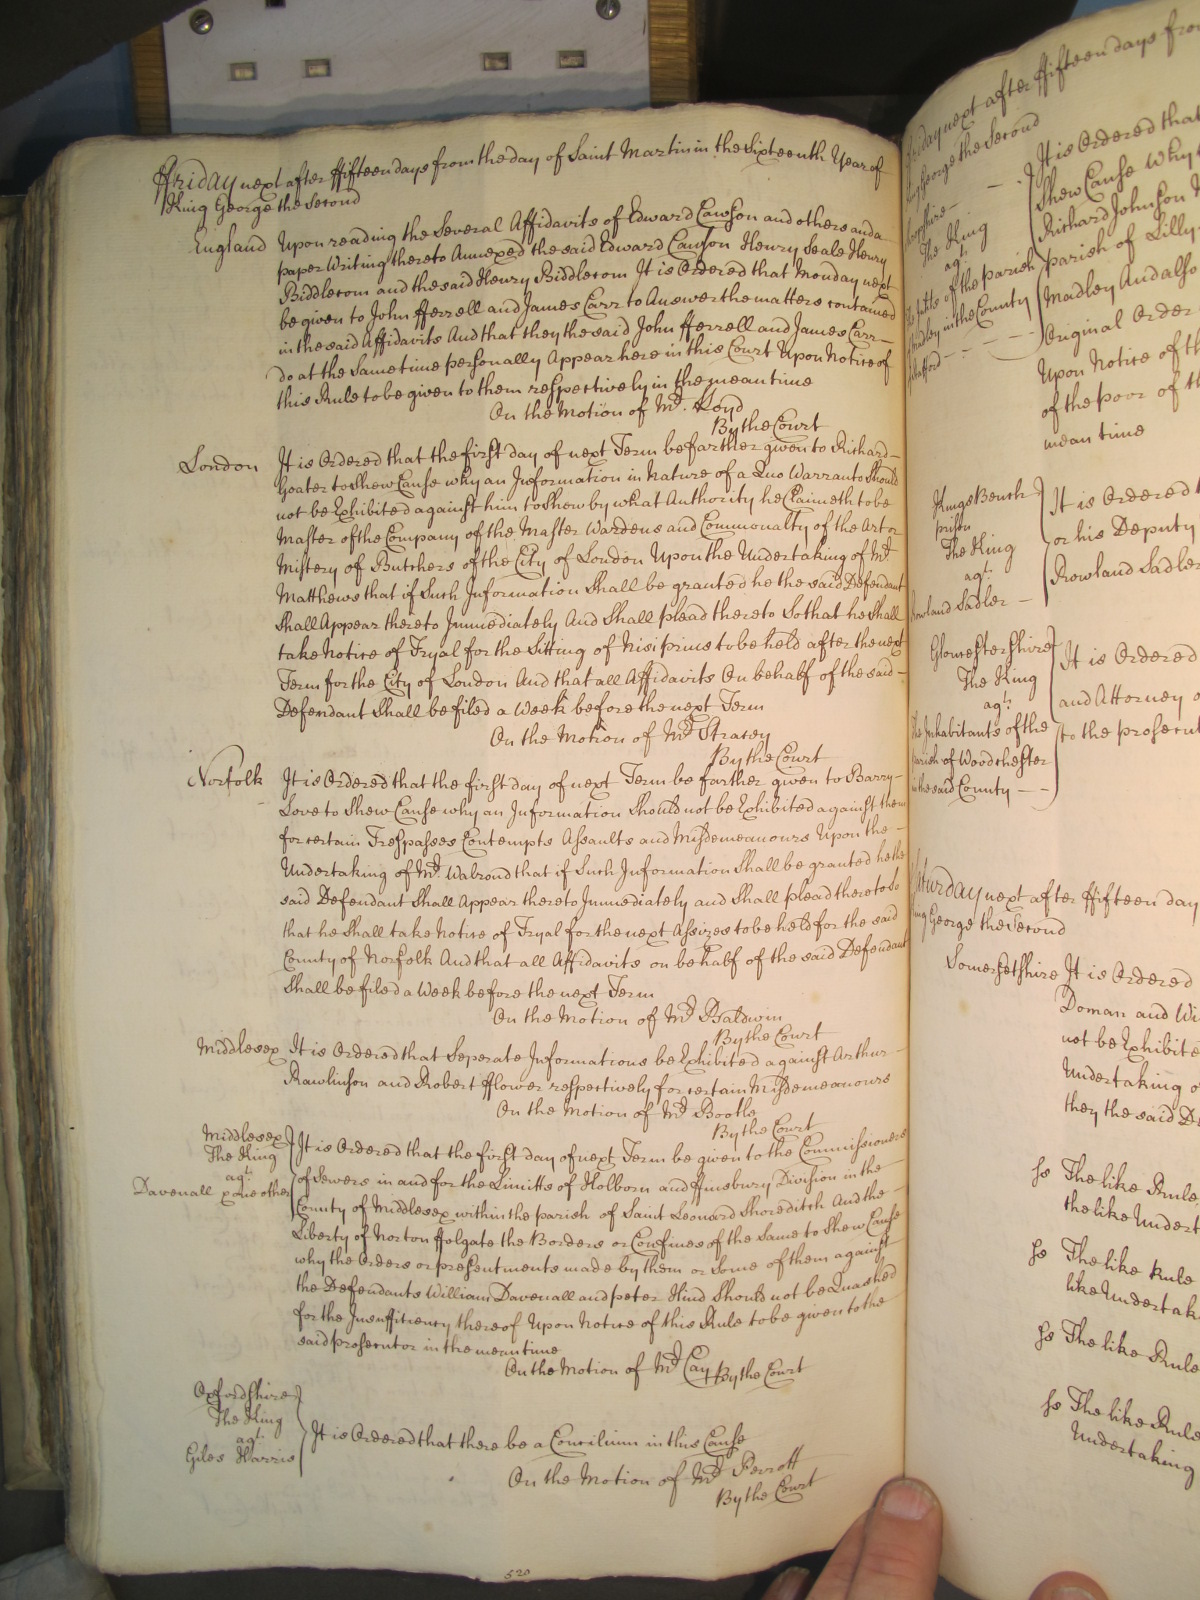 Friday next after ffifteen days from the day of Saint Martin in the Sixteenth Year of
King George the Second
England Upon reading the Several Affidavits of Edward Cawson and others and a
paper Writing thereto Annexed the said Edward Cawson Henry Seale Henry
Biddlecom and the said Henry Biddlecom It is Ordered that Monday next
be given to John fferrell and James Carr to Answer the matters contained
in the said Affidavits And that they the said John fferrell and James Carr
do at the same time personally Appear here in this Court Upon Notice of
this Rule to be given to them respectively in the mean time
On the Motion of Mr. Lloyd
By the Court
London It is Ordered that the first day of next Term be farther given to Richard
Goater to Shew Cause why an Information in Nature of a Quo Warranto Should
not be Exhibited against him to shew by what Authority he Claimeth to be
Master of the Company of the Master Wardens and Commonalty of the Art or
Mistery of Butchers of the City of London Upon the Undertaking of Mr.
Matthews that if Such Information Shall be granted he the said Defendant
Shall Appear thereto Immediately And Shall plead thereto So that he Shall
take Notice of Tryal for the Sitting of Nisi prius to be held after the next
Term for the City of London And that all Affidavits On behalf of the said
Defendant Shall be filed a Week before the next Term
On the Motion of Mr. Stracey
By the Court
Norfolk It is Ordered that the first day of next Term be farther given to Barry
Love to Shew Cause why an Information Should not be Exhibited against them
for certain Trespasses Contempts Assaults and Misdemeanours Upon the
Undertaking of Mr. Walrond that if Such Information Shall be granted he the
said Defendant Shall Appear thereto Immediately and Shall plead thereto So
that he Shall take Notice of Tryal for the next Assizes to be held for the said
County of Norfolk And that all Affidavits on behalf of the said Defendant
Shall be filed a Week before the next Term
On the Motion of Mr. Baldwin
By the Court
Middlesex It is Ordered that Seperate Informations be Exhibited against Arthur
Rawlinson and Robert fflower respectively for certain Misdemeanours
On the Motion of Mr. Bootle
By the Court
Middlesex
The King
agt.
Davenall & one other
It is Ordered that the first day of next Term be given to the Commissioners
of Sewers in and for the Limitts of Holborn and ffinsbury Division in the
County of Middlesex within the parish of Saint Leonard Shoreditch And the
Liberty of Norton ffolgate the Borders or Confines of the Same to Shew Cause
why the Orders or presentments made by them or Some of them against
the Defendants William Davenall and peter Hind Should not be Quashed
for the Insufficiency thereof Upon Notice of this Rule to be given to the
said prosecutor in the mean time
On the Motion of Mr. Cay By the Court
Oxfordshire
The King
agt.
Giles Harris
It is Ordered that there be a Concilium in this Cause
On the Motion of Mr. Perrott
By the Court
520
Friday next after ffifteen days from
King George the Second
The King
agt.
of the parish
Madley in the County
Stafford
It is Ordered that
Shew Cause Why
Richard Johnson
parish of Lilly
Madley And also
Original Order
Upon Notice of th
of the poor of th
mean time
Kings Bench
prison
The King
agt.
Rowland Sadler
It is Ordered
or his Deputy
Rowland Sadler
Gloucestershire
The King
agt.
The Inhabitants of the
parish of Woodchester
in the said County
It is Ordered
and Attorney
to the prosecut
Saturday next after ffifteen day
King George the Second
Somersetshire It is Ordered
Doman and Wi
not be Exhibite
Undertaking o
they the said De
ss The like Rule
the like Undert
ss The like Rule
like Undertak
ss The like Rule
ss The like Rule
Undertaking